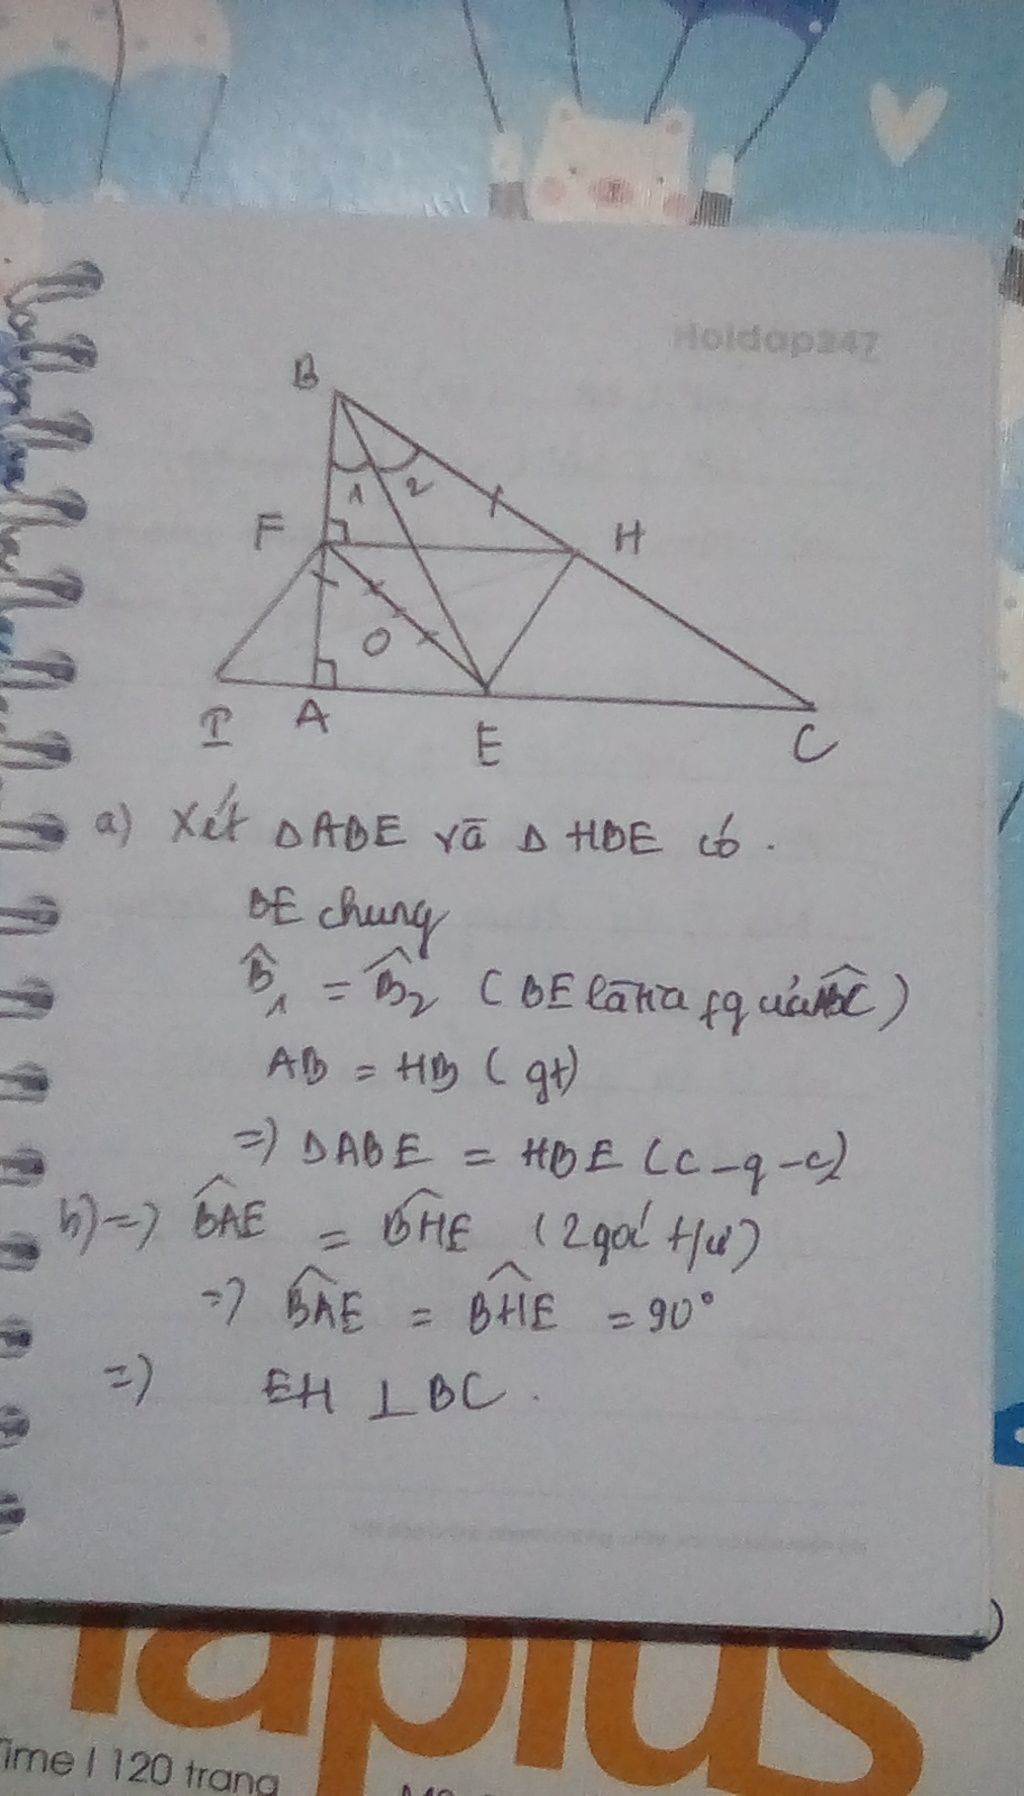 Hoidap247
B
1 2
F H
O
I A E C
a) Xét ΔABE và Δ HBE có .
BE chung
B̂₁ = B̂₂ ( BE là tia fg của ABC )
AB = HB ( gt)
=) ΔABE = HBE (c-g-c)
b) =) BAE = BHE (2 góc t/ư)
=) BAE = BHE = 90°
=) EH ⊥ BC .
laplus
Time | 120 trang